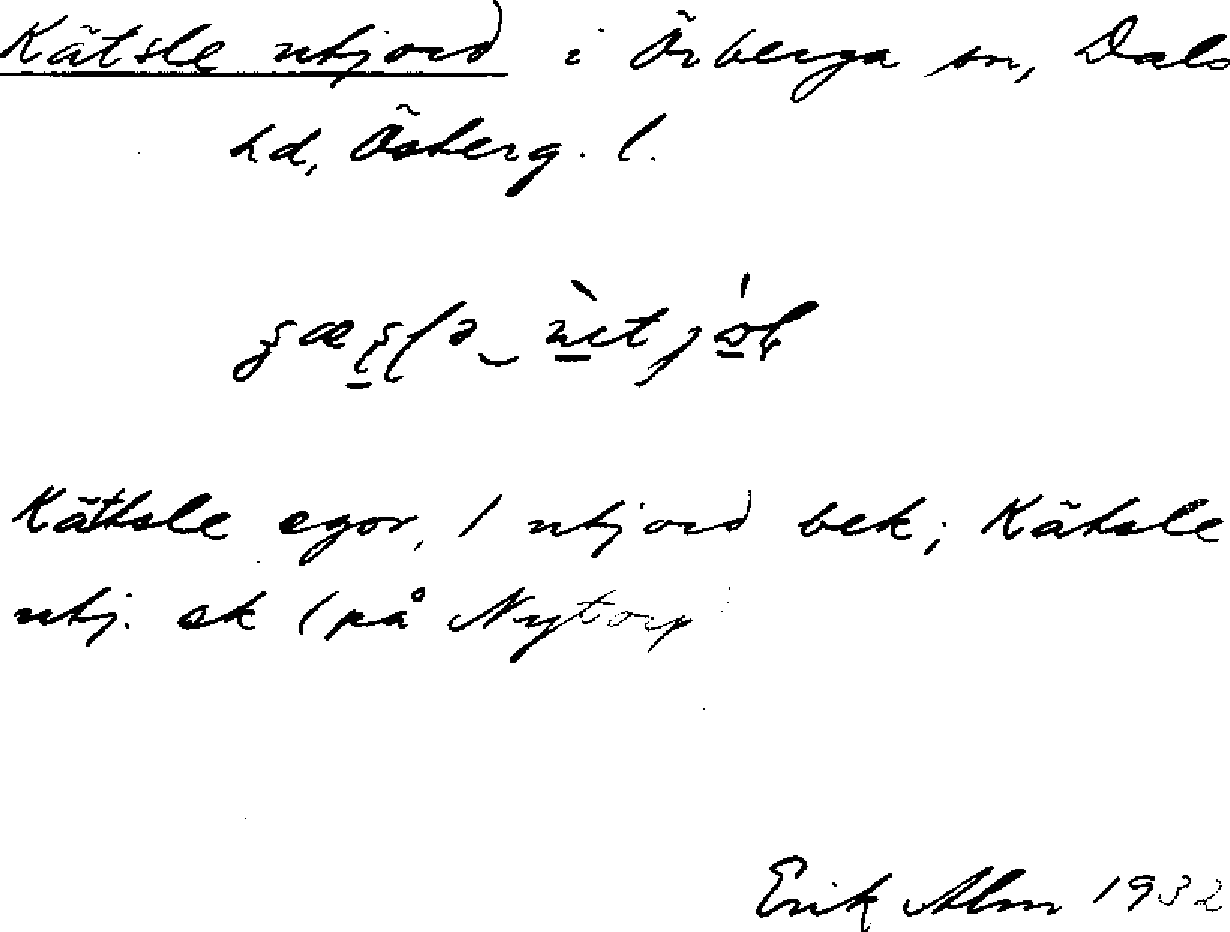 Kätsle utjord i Örberga sn, Dals
hd, Österg. l.
Kättsle egor, 1 utjord bek; Kätsle
utj. ek (på Nytorp
Erik Alm 1932